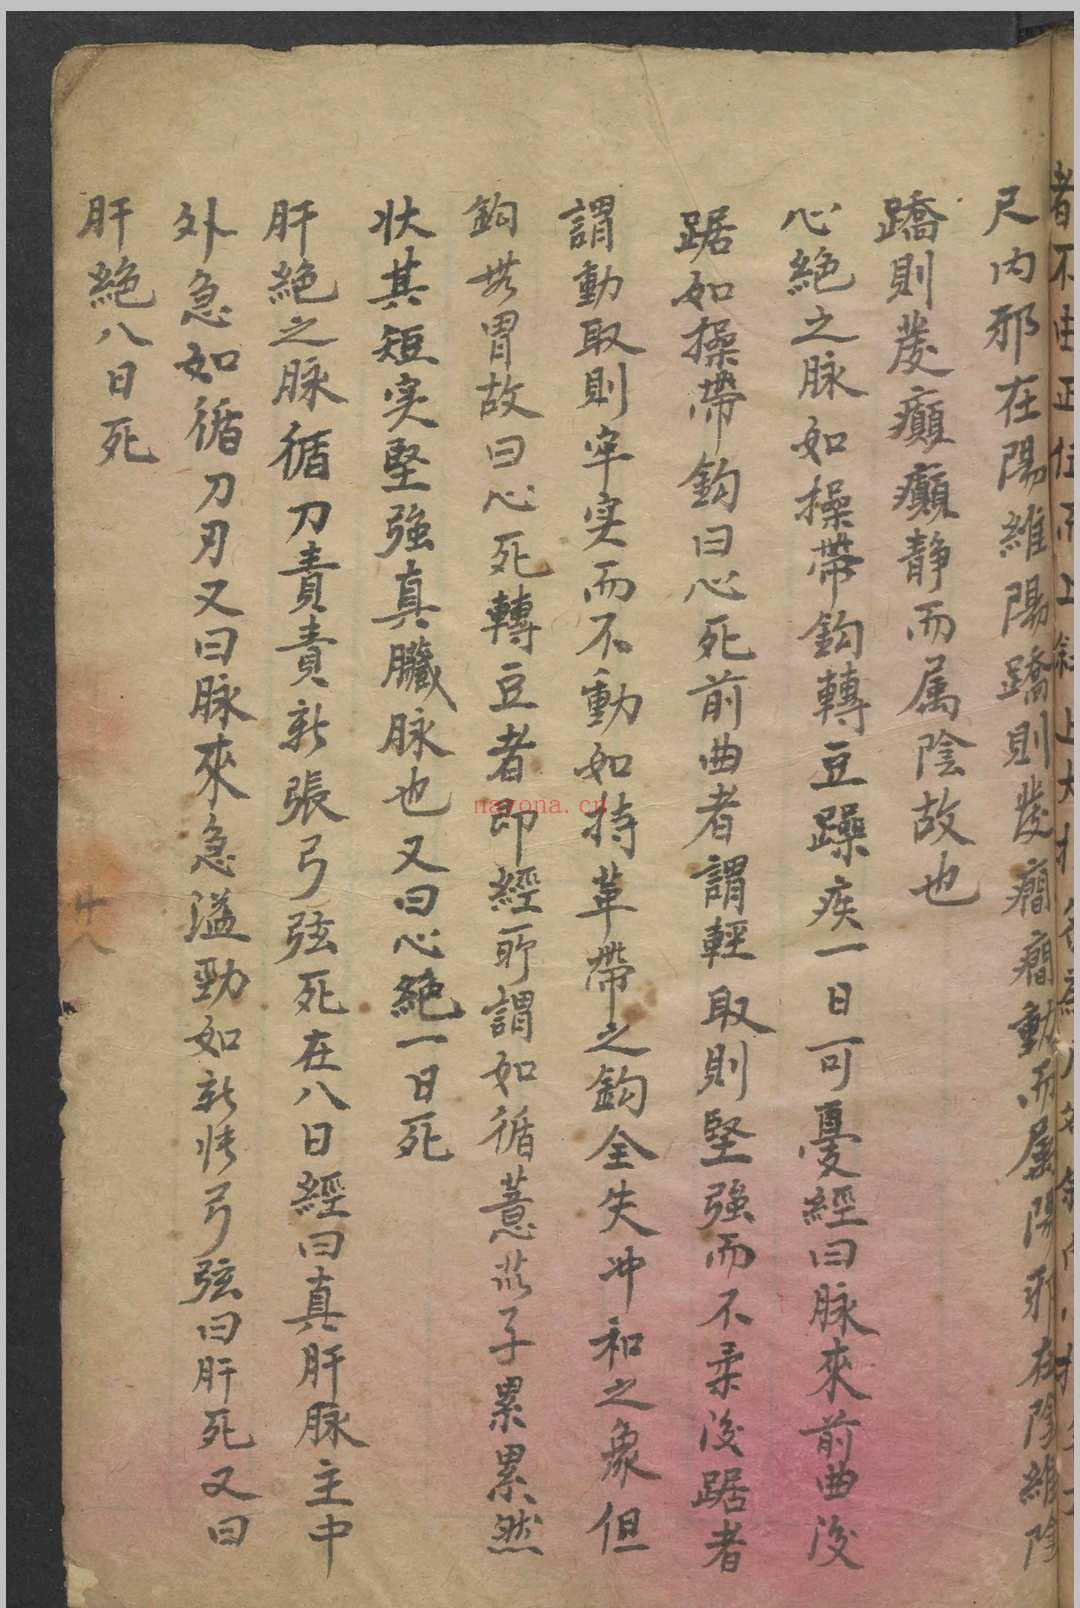 尺內邪在陽維陽蹻則發癎癎動而屬陽邪在陰維陰
蹻則發癲癲静而属陰故也
心絕之脉如操帶鈎轉豆躁疾一日可憂經曰脉來前曲後
踞如操帶鈎曰心死前曲者謂輕取則堅強而不柔後踞者
謂動取則牢实而不動如持革帶之鈎全失冲和之象但
鈎無胃故曰心死轉豆者即經所謂如循薏苡子累累然
状其短实堅強真臟脉也又曰心絕一日死
肝絕之脉循刀責責新張弓弦死在八日經曰真肝脉主中
外急如循刀刃又曰脉來急溢勁如新張弓弦曰肝死又曰
肝絕八日死
十八
nayona.cn